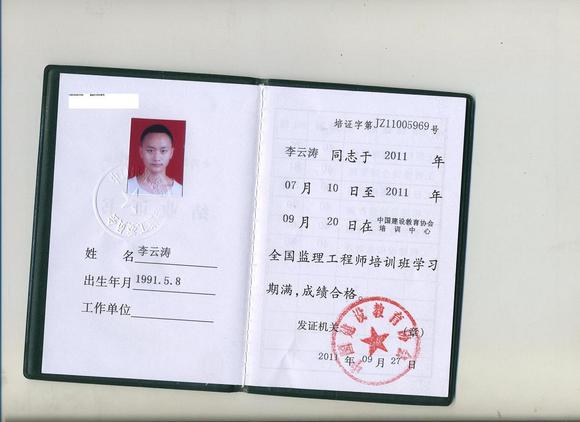 姓 名 李云涛
出生年月 1991.5.8
工作单位
培证字第JZ11005969号
李云涛 同志于 2011 年
07 月 10 日至 2011 年
09 月 20 日在 中国建设教育协会
培训中心
全国监理工程师培训班学习
期满,成绩合格。
发证机关 (章)
中国建设教育协会
2011 年 09 月 27 日